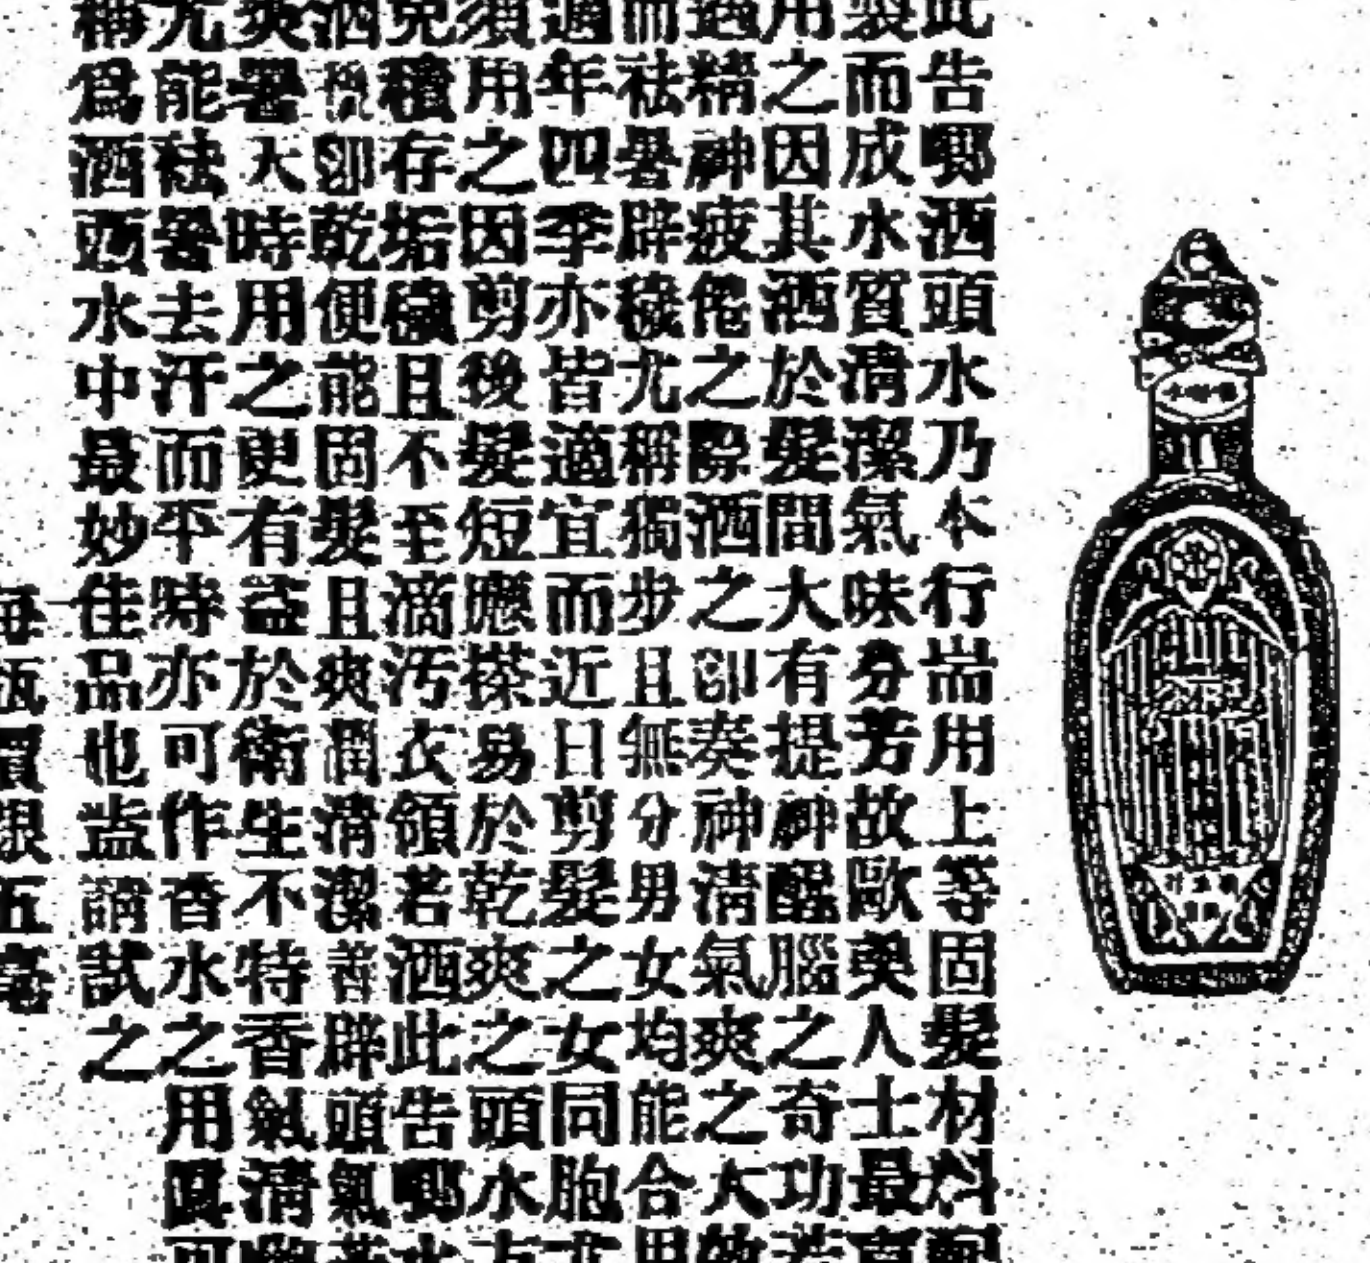 此告郹洒頭水乃本行耑用上等固髮材料
製而成水質清潔氣味芬芳故歐美人士最
用之因其洒於髮間大有提神醒腦之奇功若
遇精神疲倦之際洒之卽奏神清氣爽之大
而祛暑辟穢尤稱獨步且無分男女均能合用
適年四季亦皆適宜而近日剪髮之女同胞尤
須用之因剪後髮短應搽易於乾爽之頭水方
免積存垢穢且不至滴汚衣領若洒此告郹水
洒後卽乾便能固髮且爽潤清潔善辟頭氣若
炎暑大時用之更有益於衛生不特香氣清
尤能祛暑去汗而平時亦可作香水之用眞可
稱爲洒頭水中最妙佳品也盍請試之
每瓶價銀五毫